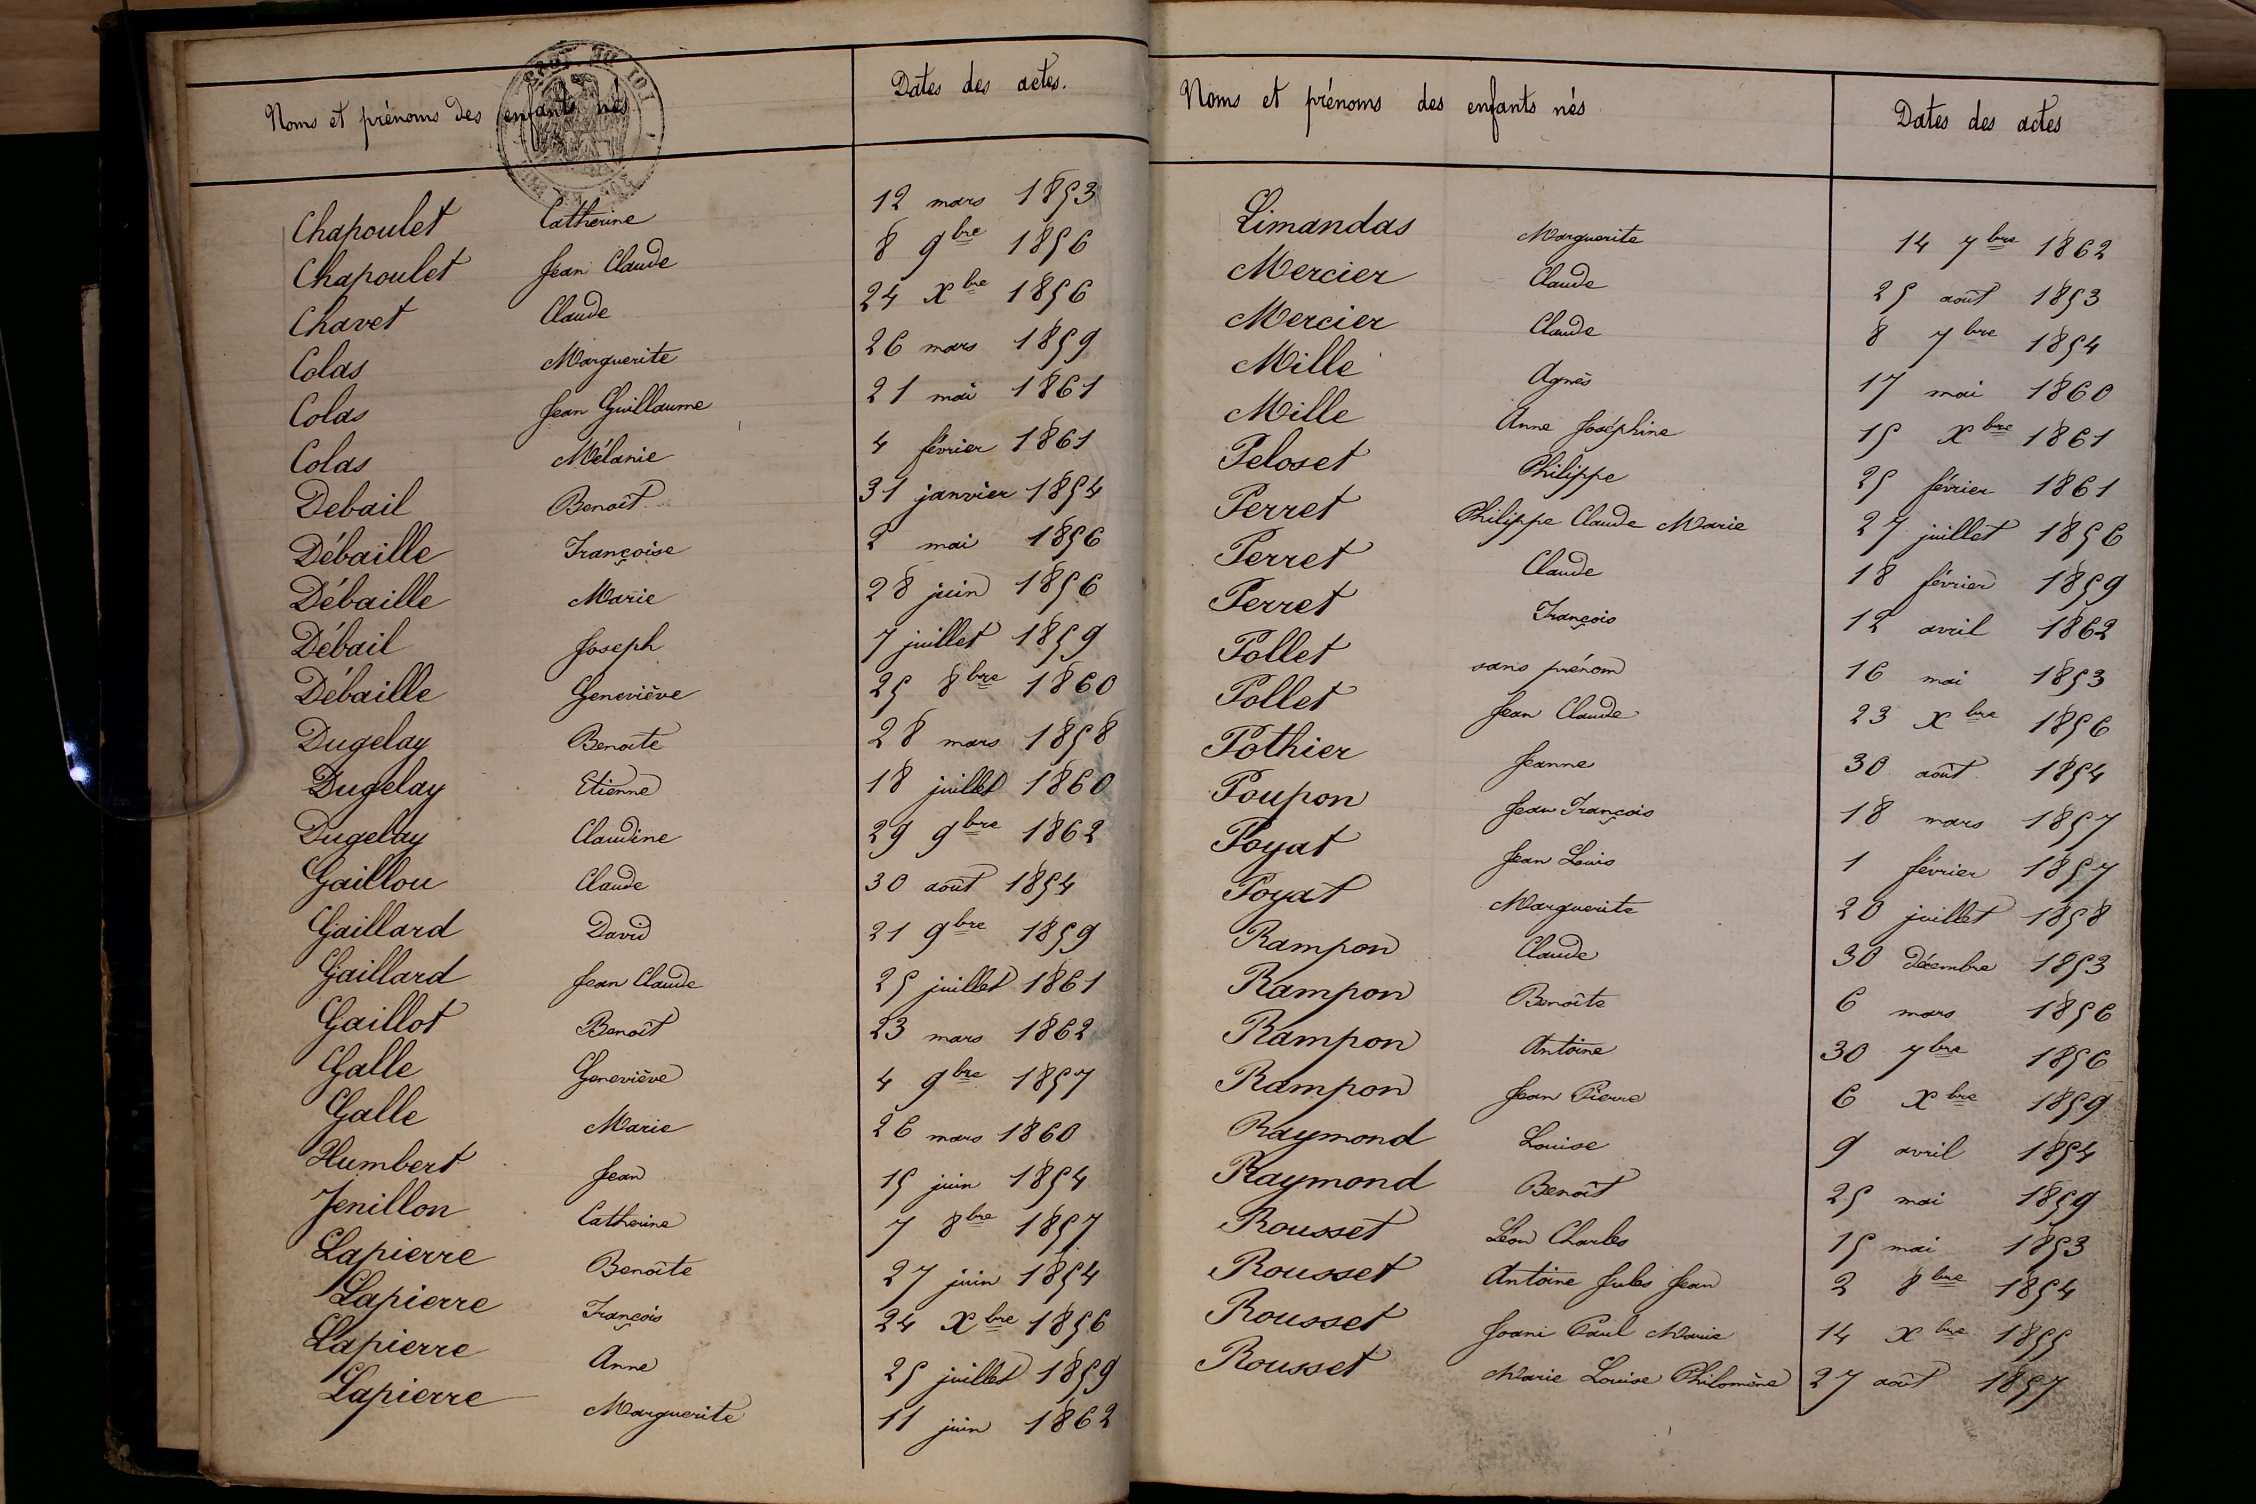 Noms et prénoms des enfants nés Dates des actes.
Chapoulet Catherine 12 mars 1853
Chapoulet Jean Claude 8 9bre 1856
Chavet Claude 24 Xbre 1856
Colas Marguerite 26 mars 1859
Colas Jean Guillaume 21 mai 1861
Colas Mélanie 4 février 1861
Debail Benoît 31 janvier 1854
Débaille Françoise 2 mai 1856
Débaille Marie 28 juin 1856
Débail Joseph 7 juillet 1859
Débaille Geneviève 25 8bre 1860
Dugelay Benoite 28 mars 1858
Dugelay Etienne 18 juillet 1860
Dugelay Claudine 29 9bre 1862
Gaillou Claude 30 août 1854
Gaillard David 21 9bre 1859
Gaillard Jean Claude 25 juillet 1861
Gaillot Benoît 23 mars 1862
Galle Geneviève 4 9bre 1857
Galle Marie 26 mars 1860
Humbert Jean 15 juin 1854
Jenillon Catherine 7 8bre 1857
Lapierre Benoîte 27 juin 1854
Lapierre François 24 Xbre 1856
Lapierre Anne 25 juillet 1859
Lapierre Marguerite 11 juin 1862
Noms et prénoms des enfants nés Dates des actes
Limandas Marguerite 14 7bre 1862
Mercier Claude 25 août 1853
Mercier Claude 8 7bre 1854
Mille Agnès 17 mai 1860
Mille Anne Joséphine 15 Xbre 1861
Peloset Philippe 25 février 1861
Perret Philippe Claude Marie 27 juillet 1856
Perret Claude 18 février 1859
Perret François 12 avril 1862
Pollet sans prénom 16 mai 1853
Pollet Jean Claude 23 Xbre 1856
Pothier Jeanne 30 août 1854
Poupon Jean François 18 mars 1857
Poyat Jean Louis 1 février 1857
Poyat Marguerite 20 juillet 1858
Rampon Claude 30 décembre 1853
Rampon Benoîte 6 mars 1856
Rampon Antoine 30 7bre 1856
Rampon Jean Pierre 6 Xbre 1859
Raymond Louise 9 avril 1854
Raymond Benoît 25 mai 1859
Rousset Léon Charles 15 mai 1853
Rousset Antoine Jules Jean 2 8bre 1854
Rousset Joani Paul Marie 14 Xbre 1855
Rousset Marie Louise Philomène 27 août 1857